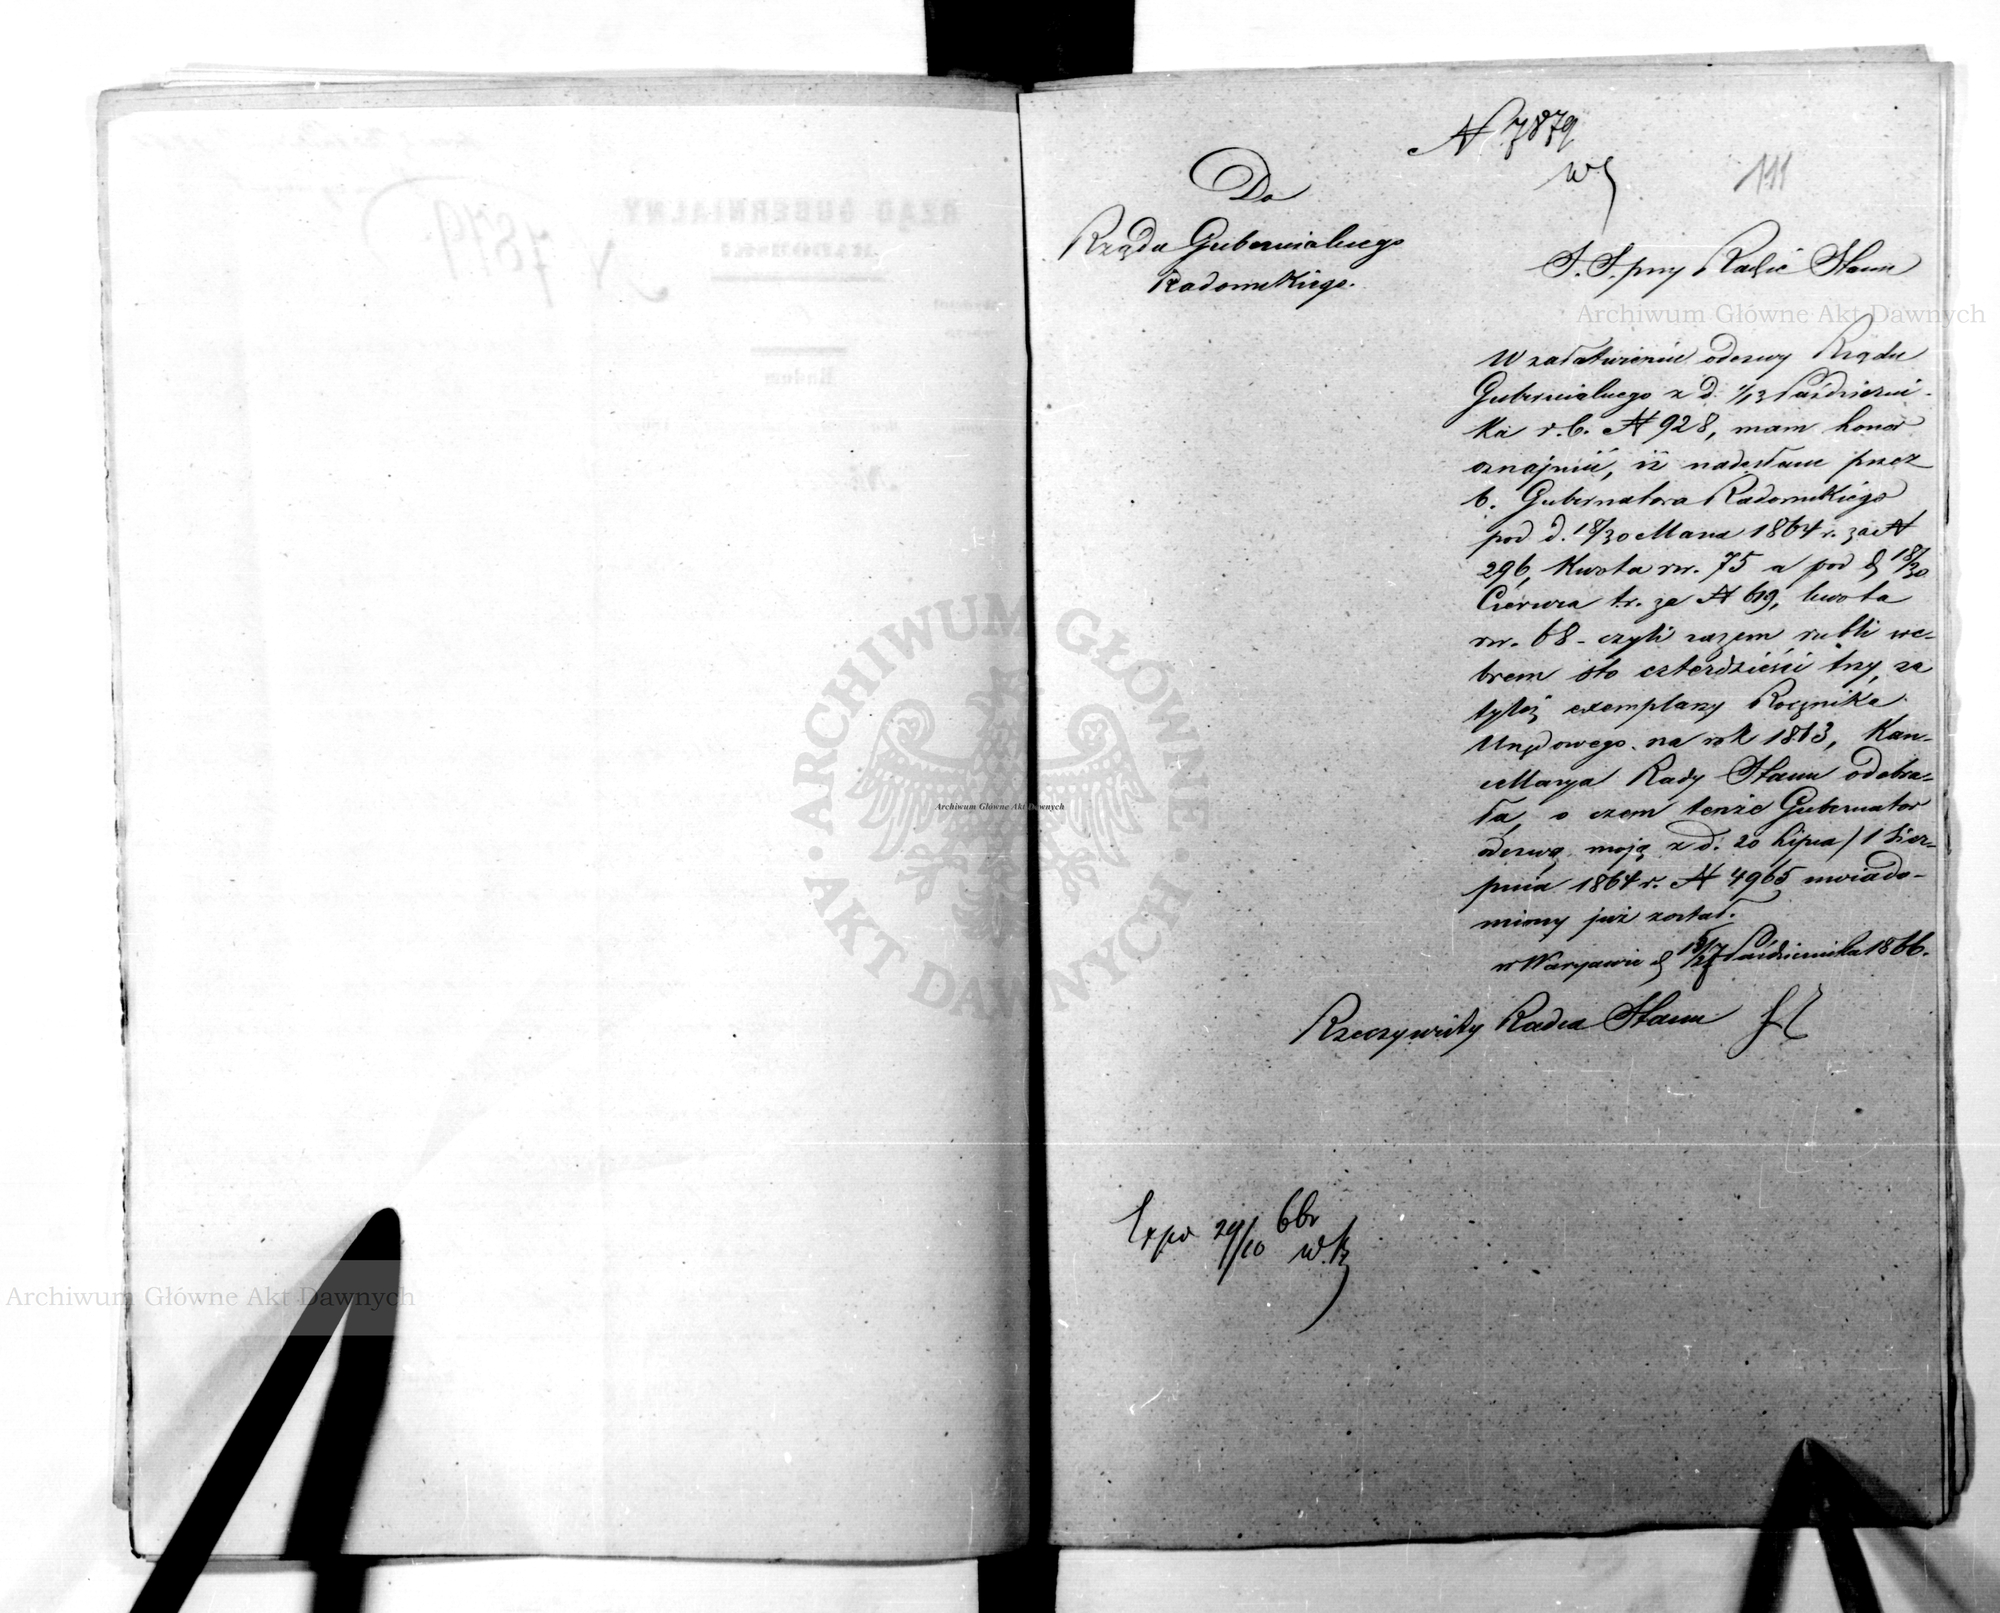 N 7879
111
Do
Rządu Gubernialnego
Radomskiego.
S. S. przy Radzie Stanu
W załatwieniu odezwy Rządu
Gubernialnego z d. 1/13 Październi-
ka r. b. N 928, mam honor
oznajmić, iż nadesłane przez
b. Gubernatora Radomskiego
pod d. 18/30 Marca 1864 r. za N
296, kwota rsr. 75 a pod d 18/30
Czerwca t.r. za N 619, kwota
rsr. 68 - czyli razem rubli sre-
brem sto czterdzieści trzy, za
tyleż exemplarzy Rocznika
Urzędowego na rok 1863, Kan-
cellarya Rady Stanu odebra-
ła, o czem tenże Gubernator
odezwą moją z d. 20 Lipca / 1 Sier-
pnia 1864 r. N 4965 uwiado-
miony już został.
w Warszawie d 15/27 Października 1866.
Rzeczywisty Radca Stanu
Expo 29/10 66r
RZĄD GUBERNIALNY
RADOMSKI
N 7879.
Radom
Archiwum Główne Akt Dawnych
Archiwum Główne Akt Dawnych
Archiwum Główne Akt Dawnych
ARCHIWUM GŁÓWNE
AKT DAWNYCH